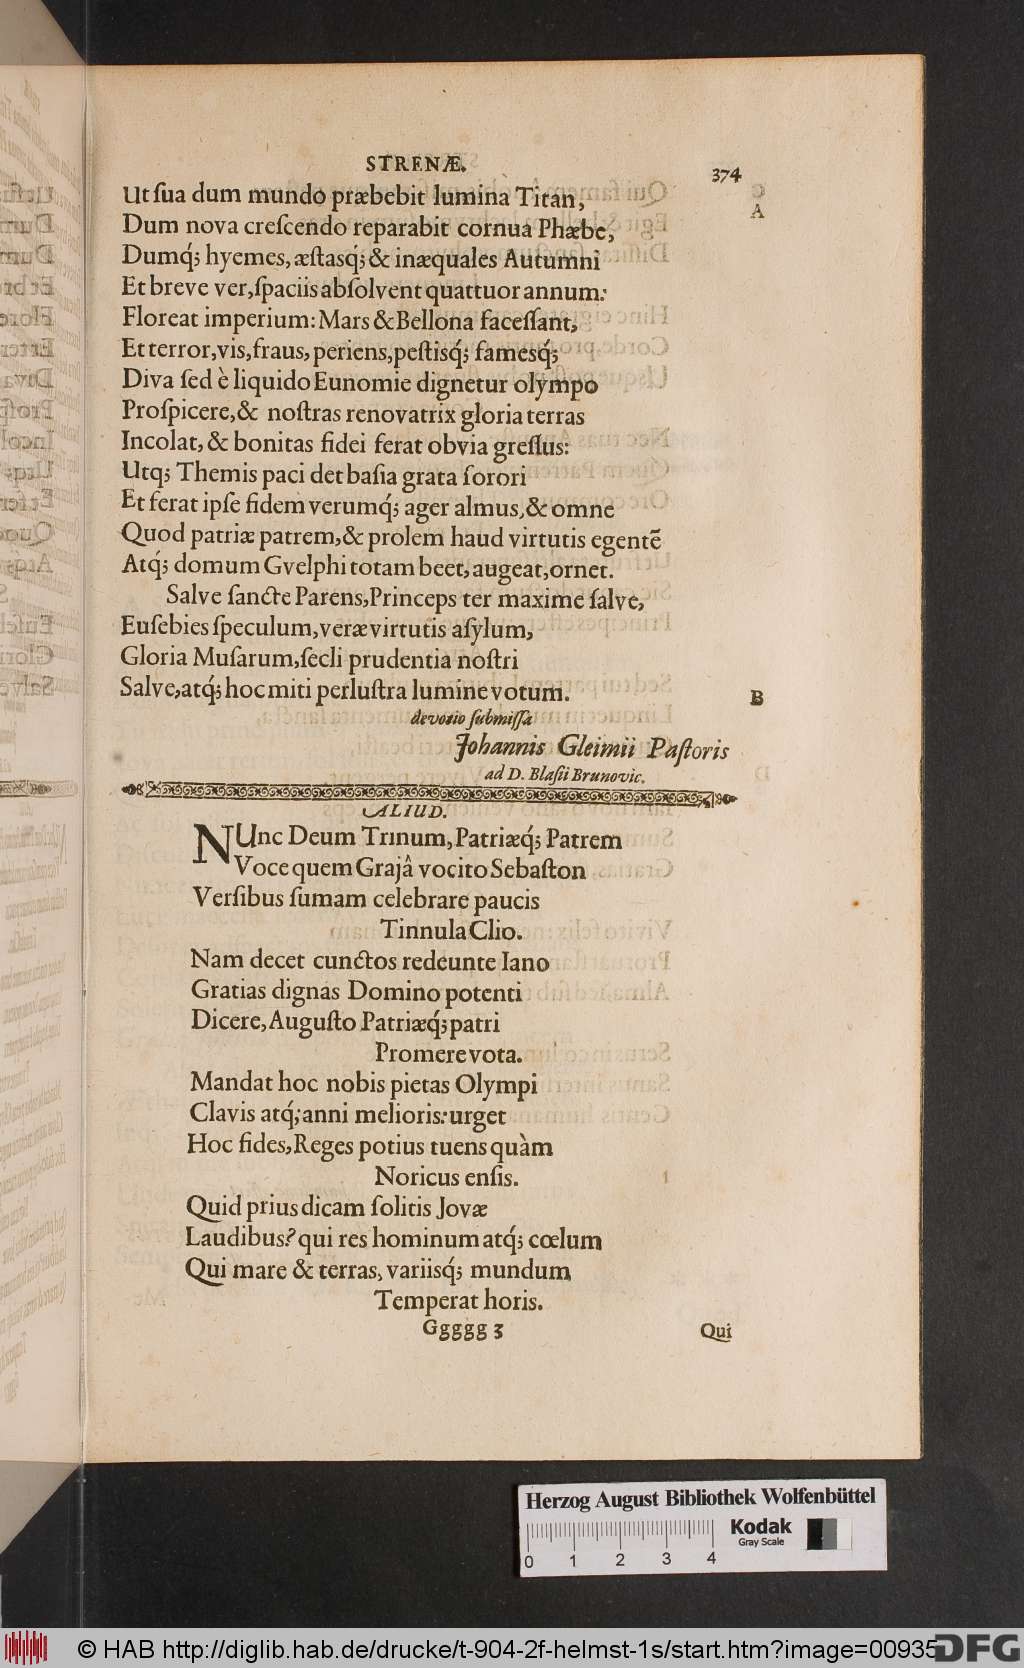 STRENÆ.
374
Ut ſua dum mundo præbebit lumina Titan,
A
Dum nova creſcendo reparabit cornua Phæbe,
Dumq́; hyemes, æſtasq́; & inæquales Autumni
Et breve ver, ſpaciis abſolvent quattuor annum:
Floreat imperium: Mars & Bellona faceſſant,
Et terror, vis, fraus, periens, peſtisq́; famesq́;
Diva ſed è liquido Eunomie dignetur olympo
Proſpicere, & noſtras renovatrix gloria terras
Incolat, & bonitas fidei ferat obvia greſſus:
Utq; Themis paci det baſia grata ſorori
Et ferat ipſe fidem verumq́; ager almus, & omne
Quod patriæ patrem, & prolem haud virtutis egentē
Atq́; domum Gvelphi totam beet, augeat, ornet.
Salve ſancte Parens, Princeps ter maxime ſalve,
Euſebies ſpeculum, veræ virtutis aſylum,
Gloria Muſarum, ſecli prudentia noſtri
Salve, atq́; hoc miti perluſtra lumine votum.
B
devotio ſubmiſſa
Johannis Gleimii Paſtoris
ad D. Blaſii Brunovic.
ALIUD.
NUnc Deum Trinum, Patriæq́; Patrem
Voce quem Grajâ vocito Sebaſton
Verſibus ſumam celebrare paucis
Tinnula Clio.
Nam decet cunctos redeunte Iano
Gratias dignas Domino potenti
Dicere, Auguſto Patriæq́; patri
Promere vota.
Mandat hoc nobis pietas Olympi
Clavis atq́; anni melioris: urget
Hoc fides, Reges potius tuens quàm
Noricus enſis.
Quid prius dicam ſolitis Jovæ
Laudibus? qui res hominum atq́; cœlum
Qui mare & terras, variisq́; mundum
Temperat horis.
Ggggg 3
Qui
Herzog August Bibliothek Wolfenbüttel
Kodak
Gray Scale
0 1 2 3 4
© HAB http://diglib.hab.de/drucke/t-904-2f-helmst-1s/start.htm?image=00935
DFG